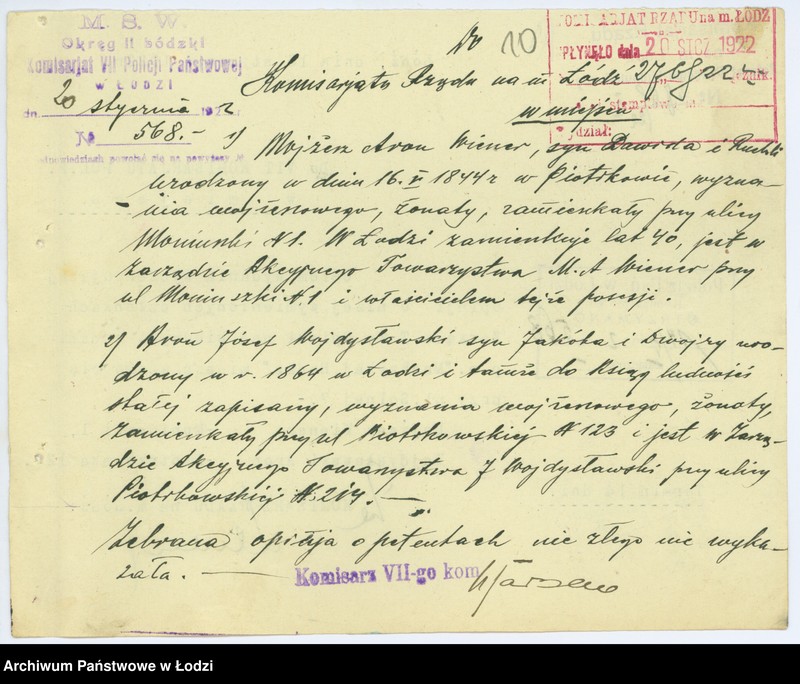 M. S. W.
Okręg II Łódzki
Komisarjat VII Policji Państwowej
w ŁODZI
20 stycznia 192 2
№ 568.-
Do
10
KOMISARJAT RZĄDU na m. ŁÓDŹ
WPŁYNĘŁO dnia 20 STCZ. 1922
Komisarjatu Rządu na m Łódź
w miejscu
1) Mojżesz Aron Wiener, syn Dawida i Ruchli
urodzony w dniu 16. V 1844 r w Piotrkowie, wyzna-
nia mojżeszowego, żonaty, zamieszkały przy ulicy
Moniuszki N 1. W Łodzi zamieszkuje lat 40, jest w
zarządzie Akcyjnego Towarzystwa M. A Wiener przy
ul Moniuszki N. 1 i właścicielem tejże posesji.
2) Aron Józef Wojdysławski syn Jakóba i Dwojry uro-
dzony w r. 1864 w Łodzi i tamże do ksiąg ludności
stałej zapisany, wyznania mojżeszowego, żonaty,
zamieszkały przy ul Piotrkowskiej N 123 i jest w Zarzą-
dzie Akcyjnego Towarzystwa J Wojdysławski przy ulicy
Piotrkowskiej N. 214. —
Zebrana opinja o petentach nic złego nie wyka-
zała. —
Komisarz VII-go kom
Archiwum Państwowe w Łodzi